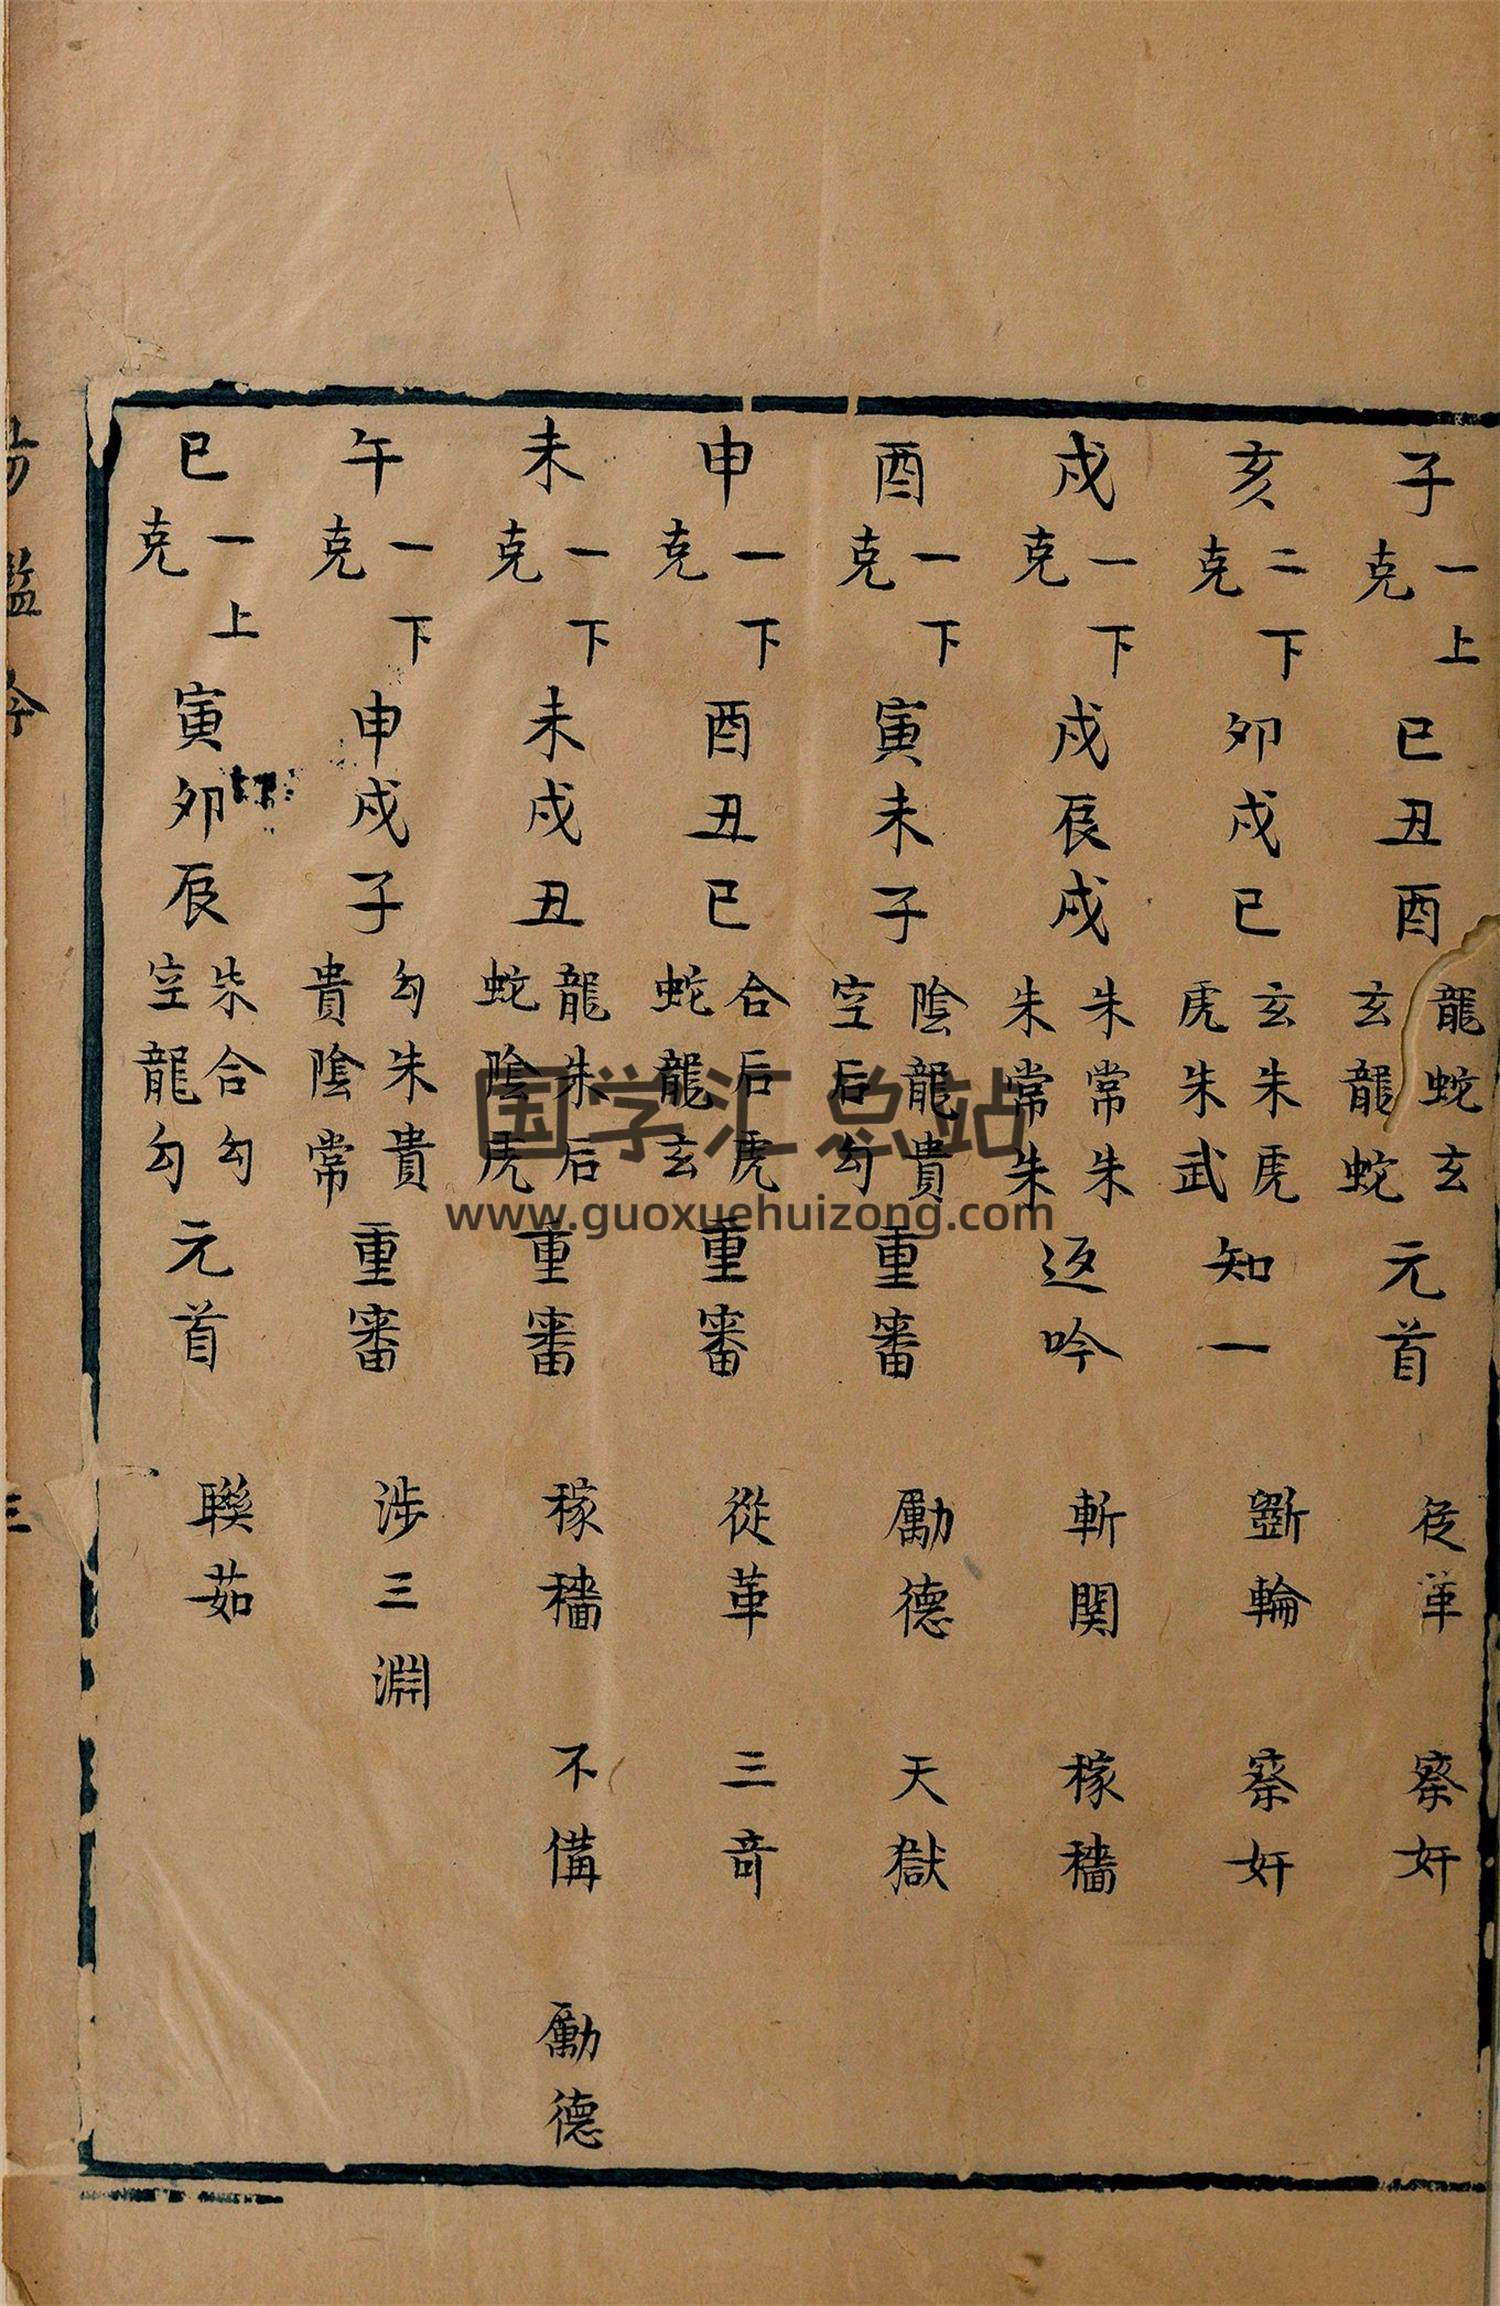 子 一上克 巳丑酉 龍蛇玄 玄龍蛇 元首 從革 察奸
亥 二下克 卯戌巳 玄朱虎 虎朱武 知一 斵輪 察奸
戌 一下克 戌辰戌 朱常朱 朱常朱 返吟 斬関 稼穡
酉 一下克 寅未子 陰龍貴 空后勾 重審 勵德 天獄
申 一下克 酉丑巳 合后虎 蛇龍玄 重審 從革 三竒
未 一下克 未戌丑 龍朱后 蛇陰虎 重審 稼穡 不偹 勵德
午 一下克 申戌子 勾朱貴 貴陰常 重審 涉三淵
巳 一上克 寅卯辰 朱合勾 空龍勾 元首 聯茹
三
国学汇总站
www.guoxuehuizong.com